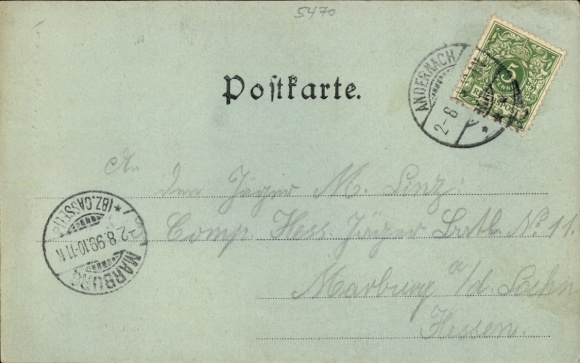 5470
Postkarte.
ANDERNACH
2-8
5
An den Jäger M. Linz
Comp. Hess. Jäger Batl. No 11.
Marburg a/d. Lahn
Hessen.
MARBURG
*(BZ. CASSEL)*
2.8.99.10-11.N